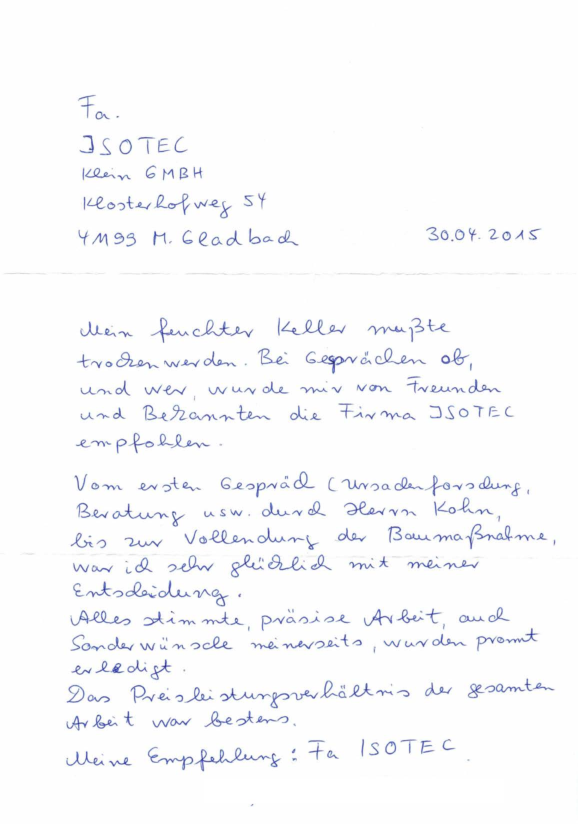 Fa.
ISOTEC
Klein GMBH
Klosterhofweg 54
41199 M. Gladbach
30.04.2015
Mein feuchter Keller mußte
trocken werden. Bei Gesprächen ob,
und wer, wurde mir von Freunden
und Bekannten die Firma ISOTEC
empfohlen.
Vom ersten Gespräch (Ursachenforschung,
Beratung usw. durch Herrn Kohn,
bis zur Vollendung der Baumaßnahme,
war ich sehr glücklich mit meiner
Entscheidung.
Alles stimmte, präsise Arbeit, auch
Sonderwünsche meinerseits, wurden promt
erledigt.
Das Preisleistungsverhältnis der gesamten
Arbeit war bestens.
Meine Empfehlung: Fa ISOTEC.